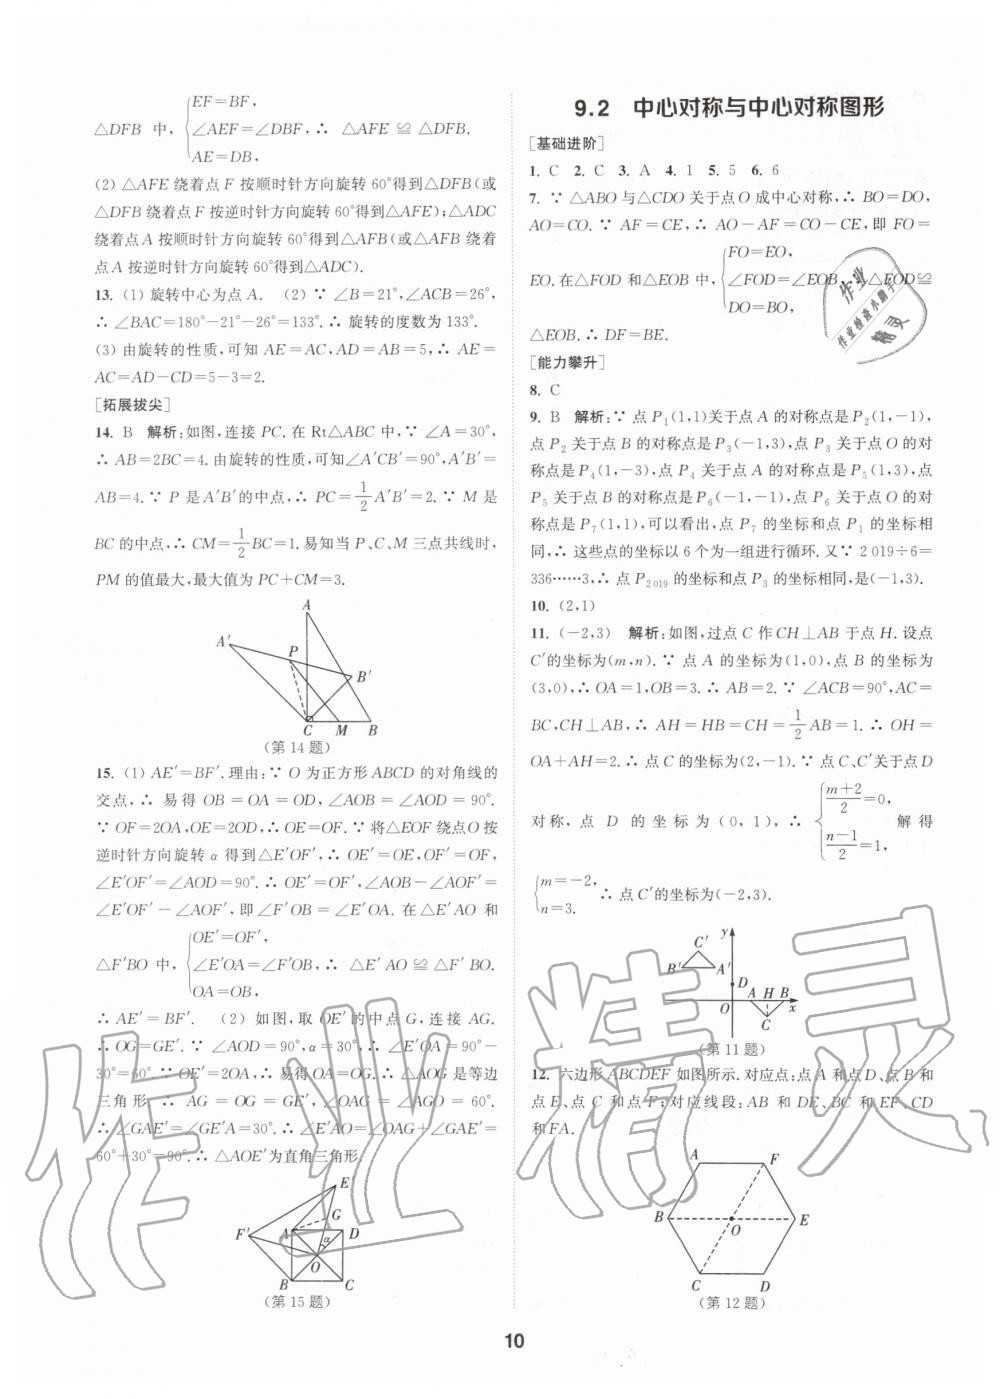 EF=BF,
△DFB 中, ∠AEF=∠DBF, ∴ △AFE ≌ △DFB.
AE=DB,
(2) △AFE 绕着点 F 按顺时针方向旋转 60°得到△DFB(或
△DFB 绕着点 F 按逆时针方向旋转 60°得到△AFE);△ADC
绕着点 A 按顺时针方向旋转 60°得到△AFB(或△AFB 绕着
点 A 按逆时针方向旋转 60°得到△ADC).
13. (1) 旋转中心为点 A. (2) ∵ ∠B=21°,∠ACB=26°,
∴ ∠BAC=180°−21°−26°=133°.∴ 旋转的度数为 133°.
(3) 由旋转的性质,可知 AE=AC,AD=AB=5,∴ AE=
AC=AD−CD=5−3=2.
[拓展拔尖]
14. B 解析:如图,连接 PC.在 Rt△ABC 中,∵ ∠A=30°,
∴ AB=2BC=4.由旋转的性质,可知∠A′CB′=90°,A′B′=
AB=4.∵ P 是 A′B′的中点,∴ PC=1/2 A′B′=2.∵ M 是
BC 的中点,∴ CM=1/2 BC=1.易知当 P、C、M 三点共线时,
PM 的值最大,最大值为 PC+CM=3.
A
A′
P
B′
C M B
(第 14 题)
15. (1) AE′=BF′.理由:∵ O 为正方形 ABCD 的对角线的
交点,∴ 易得 OB=OA=OD,∠AOB=∠AOD=90°.
∵ OF=2OA,OE=2OD,∴ OE=OF.∵ 将△EOF 绕点 O 按
逆时针方向旋转 α 得到△E′OF′,∴ OE′=OE,OF′=OF,
∠E′OF′=∠AOD=90°.∴ OE′=OF′,∠AOB−∠AOF′=
∠E′OF′−∠AOF′,即∠F′OB=∠E′OA.在△E′AO 和
OE′=OF′,
△F′BO 中, ∠E′OA=∠F′OB, ∴ △E′AO ≌ △F′BO.
OA=OB,
∴ AE′=BF′. (2) 如图,取 OE′的中点 G,连接 AG.
∴ OG=GE′.∵ ∠AOD=90°,α=30°,∴ ∠E′OA=90°−
30°=60°.∵ OE′=2OA,∴ 易得 OA=OG.∴ △AOG 是等边
三角形.∴ AG=OG=GE′,∠OAG=∠AGO=60°.
∴ ∠GAE′=∠GE′A=30°.∴ ∠E′AO=∠OAG+∠GAE′=
60°+30°=90°.∴ △AOE′为直角三角形.
E
G
F′ A D
α
O
B C
(第 15 题)
9.2 中心对称与中心对称图形
[基础进阶]
1. C 2. C 3. A 4. 1 5. 5 6. 6
7. ∵ △ABO 与△CDO 关于点 O 成中心对称,∴ BO=DO,
AO=CO.∵ AF=CE,∴ AO−AF=CO−CE,即 FO=
FO=EO,
EO.在△FOD 和△EOB 中, ∠FOD=∠EOB, △FOD≌
DO=BO,
△EOB.∴ DF=BE.
[能力攀升]
8. C
9. B 解析:∵ 点 P1(1,1)关于点 A 的对称点是 P2(1,−1),
点 P2 关于点 B 的对称点是 P3(−1,3),点 P3 关于点 O 的对
称点是 P4(1,−3),点 P4 关于点 A 的对称点是 P5(1,3),点
P5 关于点 B 的对称点是 P6(−1,−1),点 P6 关于点 O 的对
称点是 P7(1,1),可以看出,点 P7 的坐标和点 P1 的坐标相
同,∴ 这些点的坐标以 6 个为一组进行循环.又∵ 2 019÷6=
336……3,∴ 点 P2 019 的坐标和点 P3 的坐标相同,是(−1,3).
10. (2,1)
11. (−2,3) 解析:如图,过点 C 作 CH⊥AB 于点 H.设点
C′的坐标为(m,n).∵ 点 A 的坐标为(1,0),点 B 的坐标为
(3,0),∴ OA=1,OB=3.∴ AB=2.∵ ∠ACB=90°,AC=
BC,CH⊥AB,∴ AH=HB=CH=1/2 AB=1.∴ OH=
OA+AH=2.∴ 点 C 的坐标为(2,−1).∵ 点 C、C′关于点 D
(m+2)/2=0,
对称,点 D 的坐标为(0,1),∴ 解得
(n−1)/2=1,
m=−2,
∴ 点 C′的坐标为(−2,3).
n=3.
y
C′
B′ A′
D
A H B
O x
C
(第 11 题)
12. 六边形 ABCDEF 如图所示.对应点:点 A 和点 D、点 B 和
点 E、点 C 和点 F;对应线段:AB 和 DE、BC 和 EF、CD
和 FA.
A F
B O E
C D
(第 12 题)
10
作业
作业检查小助手
精灵
作业精灵